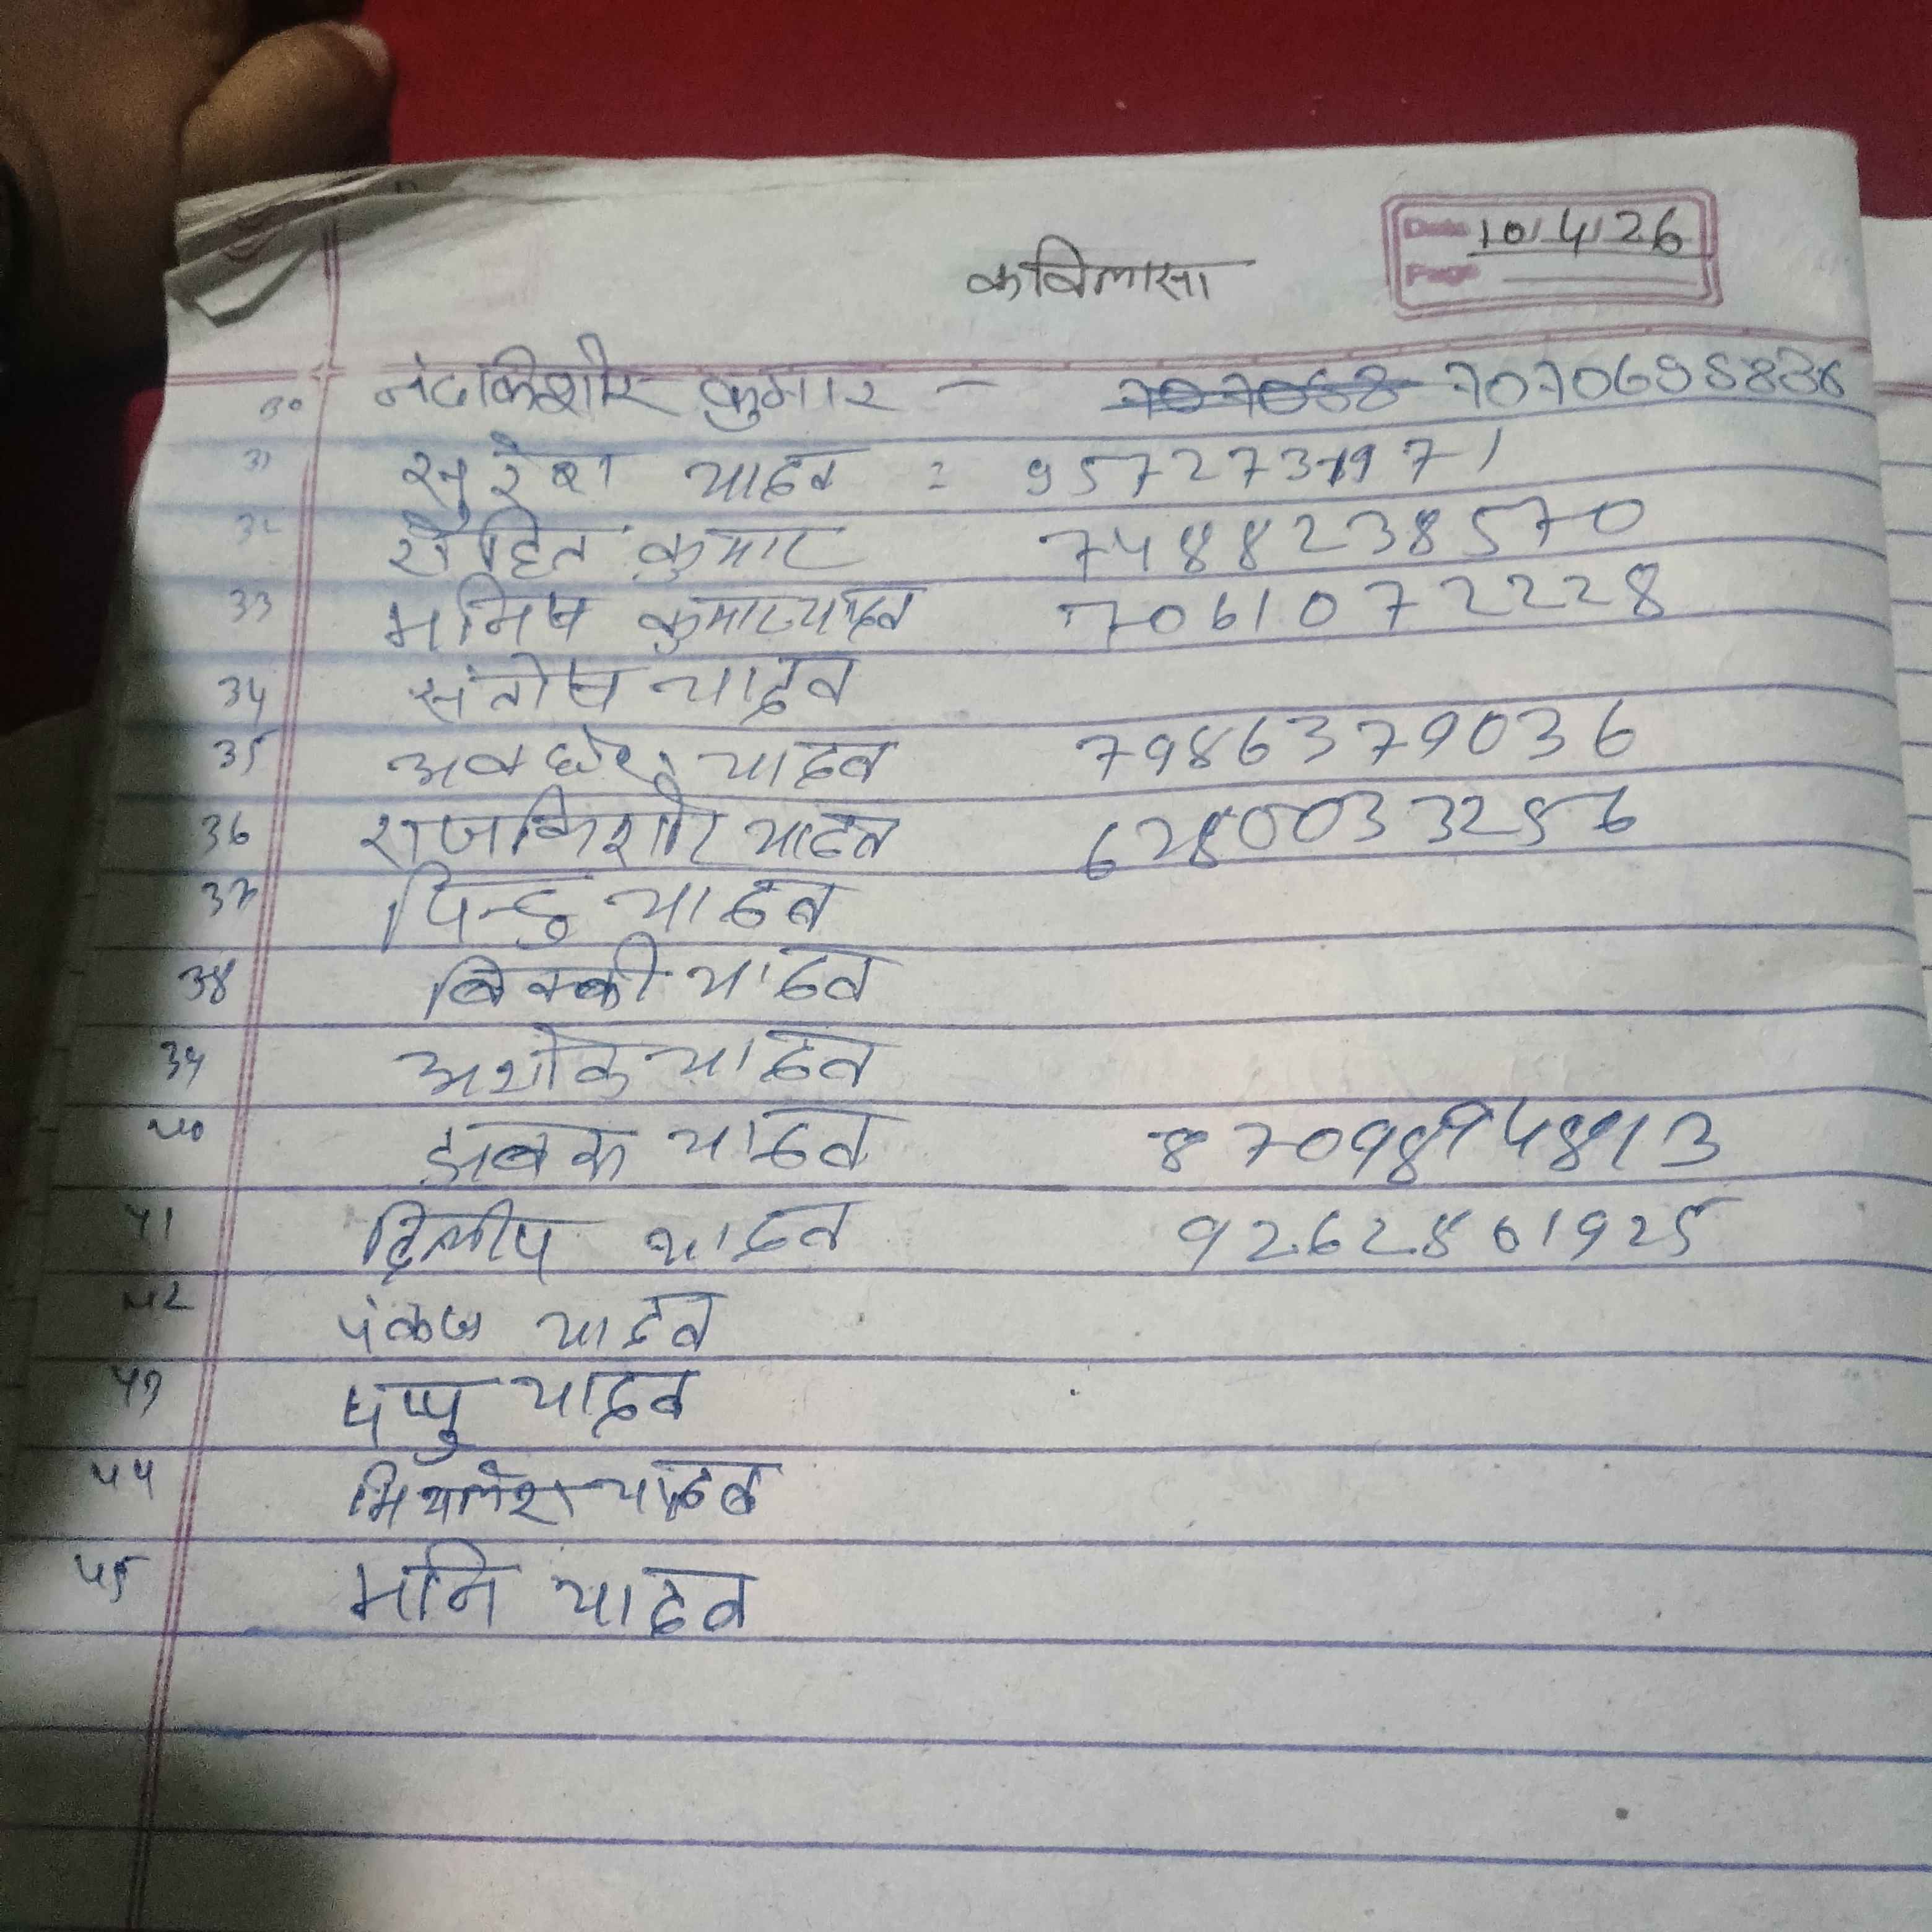 Date 10/4/26
Page
कविलासा
30 नंदकिशोर कुमार -
31 सुरेश यादव : 9572731971
32 रोहित कुमार 7488238570
33 मनिष कुमार यादव 7061072228
34 संतोष यादव
35 यादव 7986379036
36 राजकिशोर यादव 6280033256
37 पिन्टु यादव
38 बिक्की यादव
39 अशोक यादव
40 यादव
41 दिलीप यादव 9262861925
42 पंकज यादव
43 पप्पु यादव
44 मिथलेश यादव
45 मनि यादव